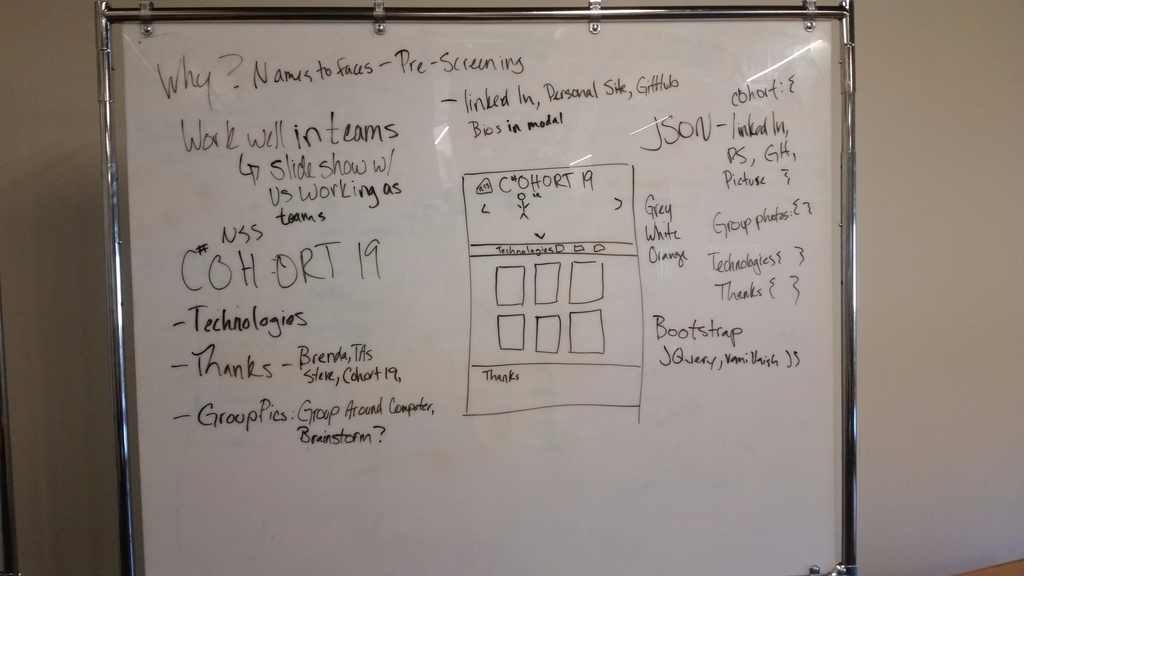 Why? Names to faces - Pre-Screening
- linked In, Personal Site, GitHub
Bios in modal
Work well in teams
↳ Slide show w/
us working as
teams
NSS
C#OHORT 19
- Technologies
- Thanks - Brenda, TAs
Steve, Cohort 19,
- Group Pics: Group Around Computer,
Brainstorm?
C#OHORT 19
< >
Technologies
Thanks
cohort: {
JSON - linked In,
PS, GH,
Picture }
Group photos: { }
Technologies { }
Thanks { }
Grey
White
Orange
Bootstrap
JQuery, JS